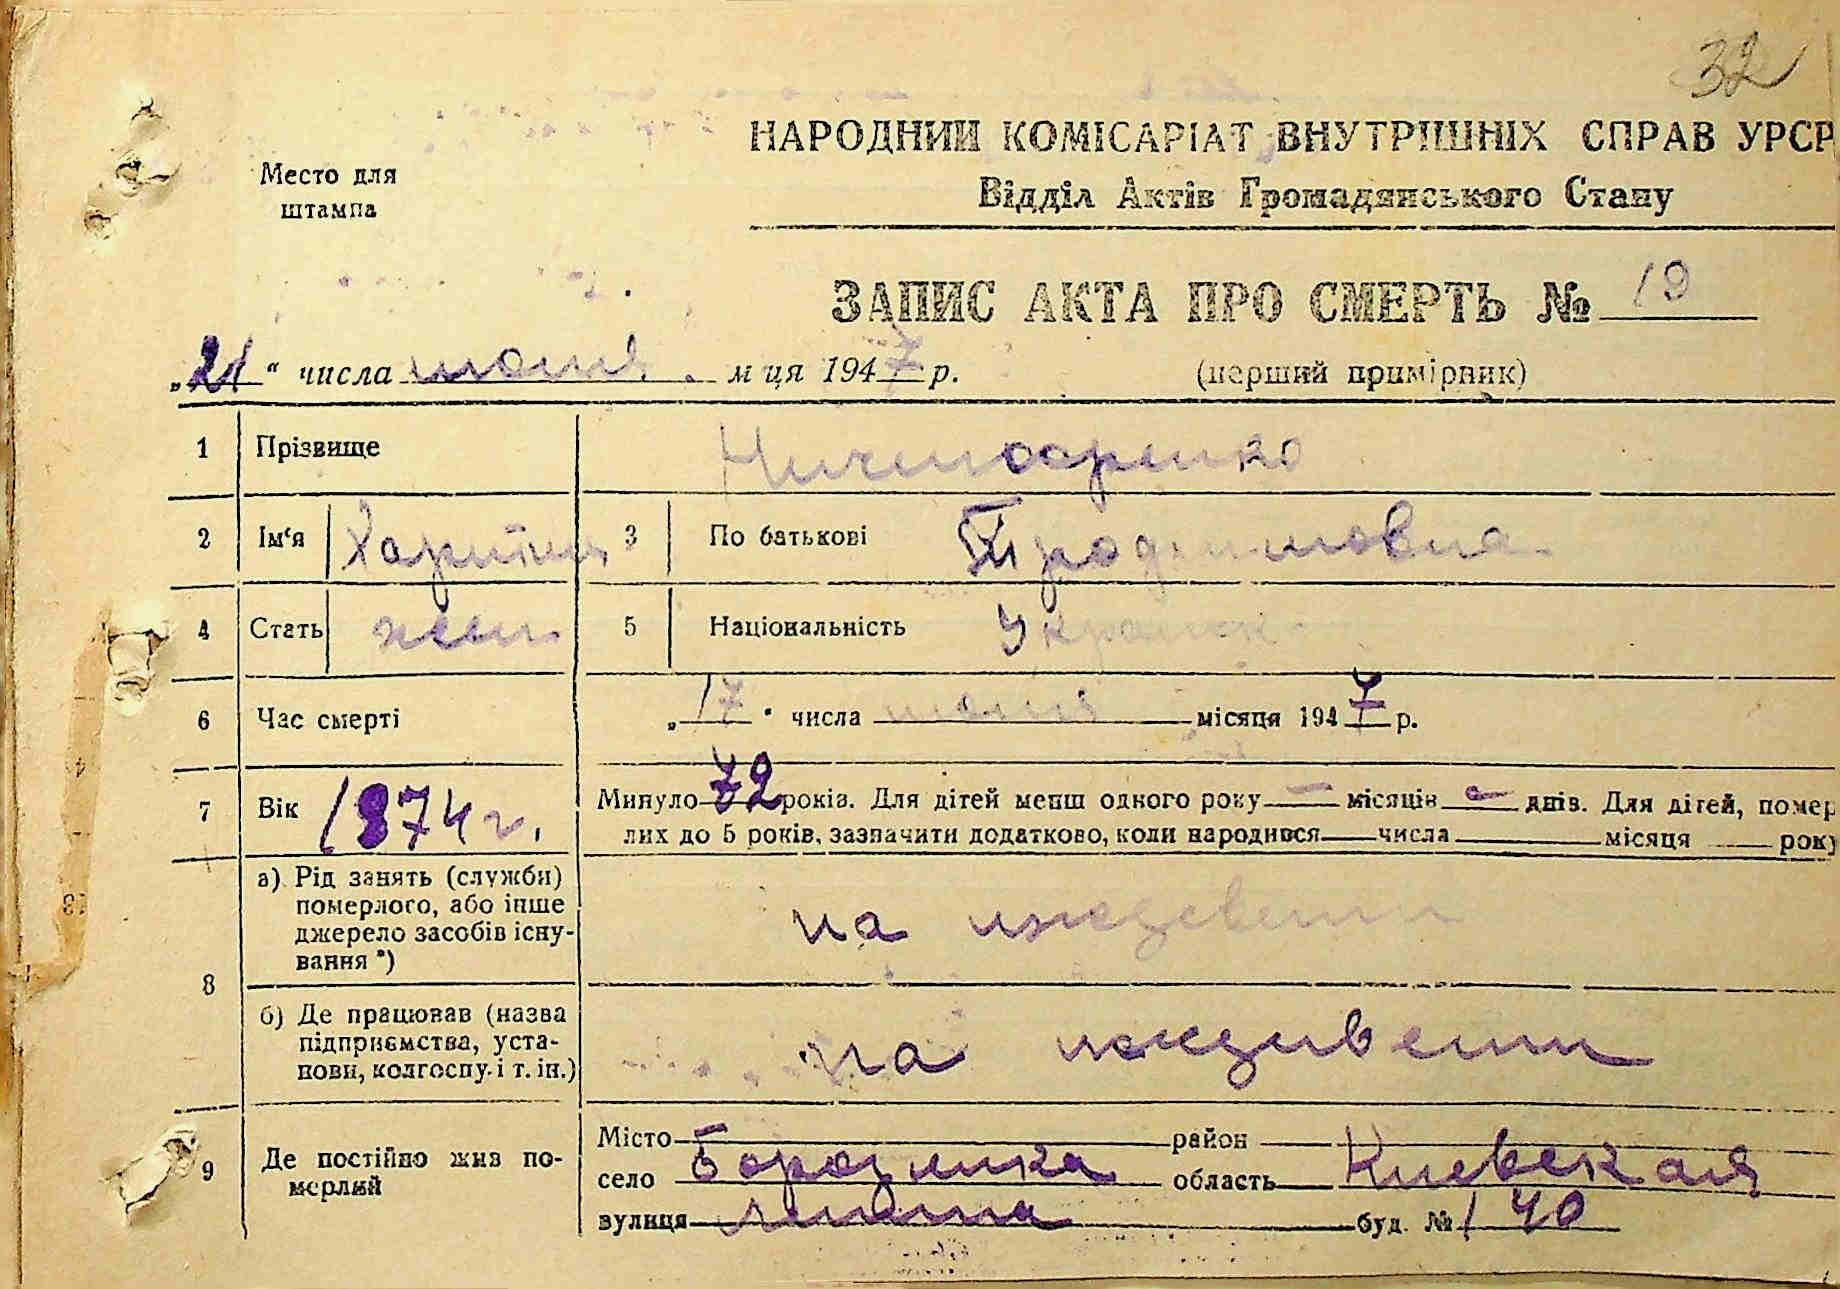 32
НАРОДНИЙ КОМІСАРІАТ ВНУТРІШНІХ СПРАВ УРСР
Место для штампа
Відділ Актів Громадянського Стану
ЗАПИС АКТА ПРО СМЕРТЬ № 19
„21“ числа июня м ця 1947 р. (перший примірник)
1 Прізвище Ничипоренко
2 Ім‘я Харитина 3 По батькові Трофимовна
4 Стать жен 5 Національність Украинк
6 Час смерті „17“ числа июня місяця 1947 р.
7 Вік 1874 г. Минуло 72 років. Для дітей менш одного року — місяців — днів. Для дітей, помер
лих до 5 років, зазначити додатково, коли народився числа місяця року
8 а) Рід занять (служби) померлого, або інше джерело засобів існу-
вання *) на иждевении
б) Де працював (назва підприємства, уста-
нови, колгоспу і т. ін.) на иждивении
9 Де постійно жив по-
мерлий
Місто район
село Бородянка область Киевская
вулиця Ленина буд. № 140